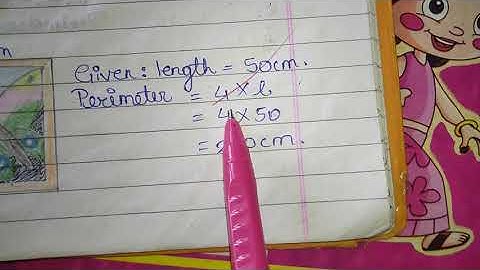 m
Given: length = 50cm.
Perimeter = 4 × l
= 4 × 50
= 0cm.